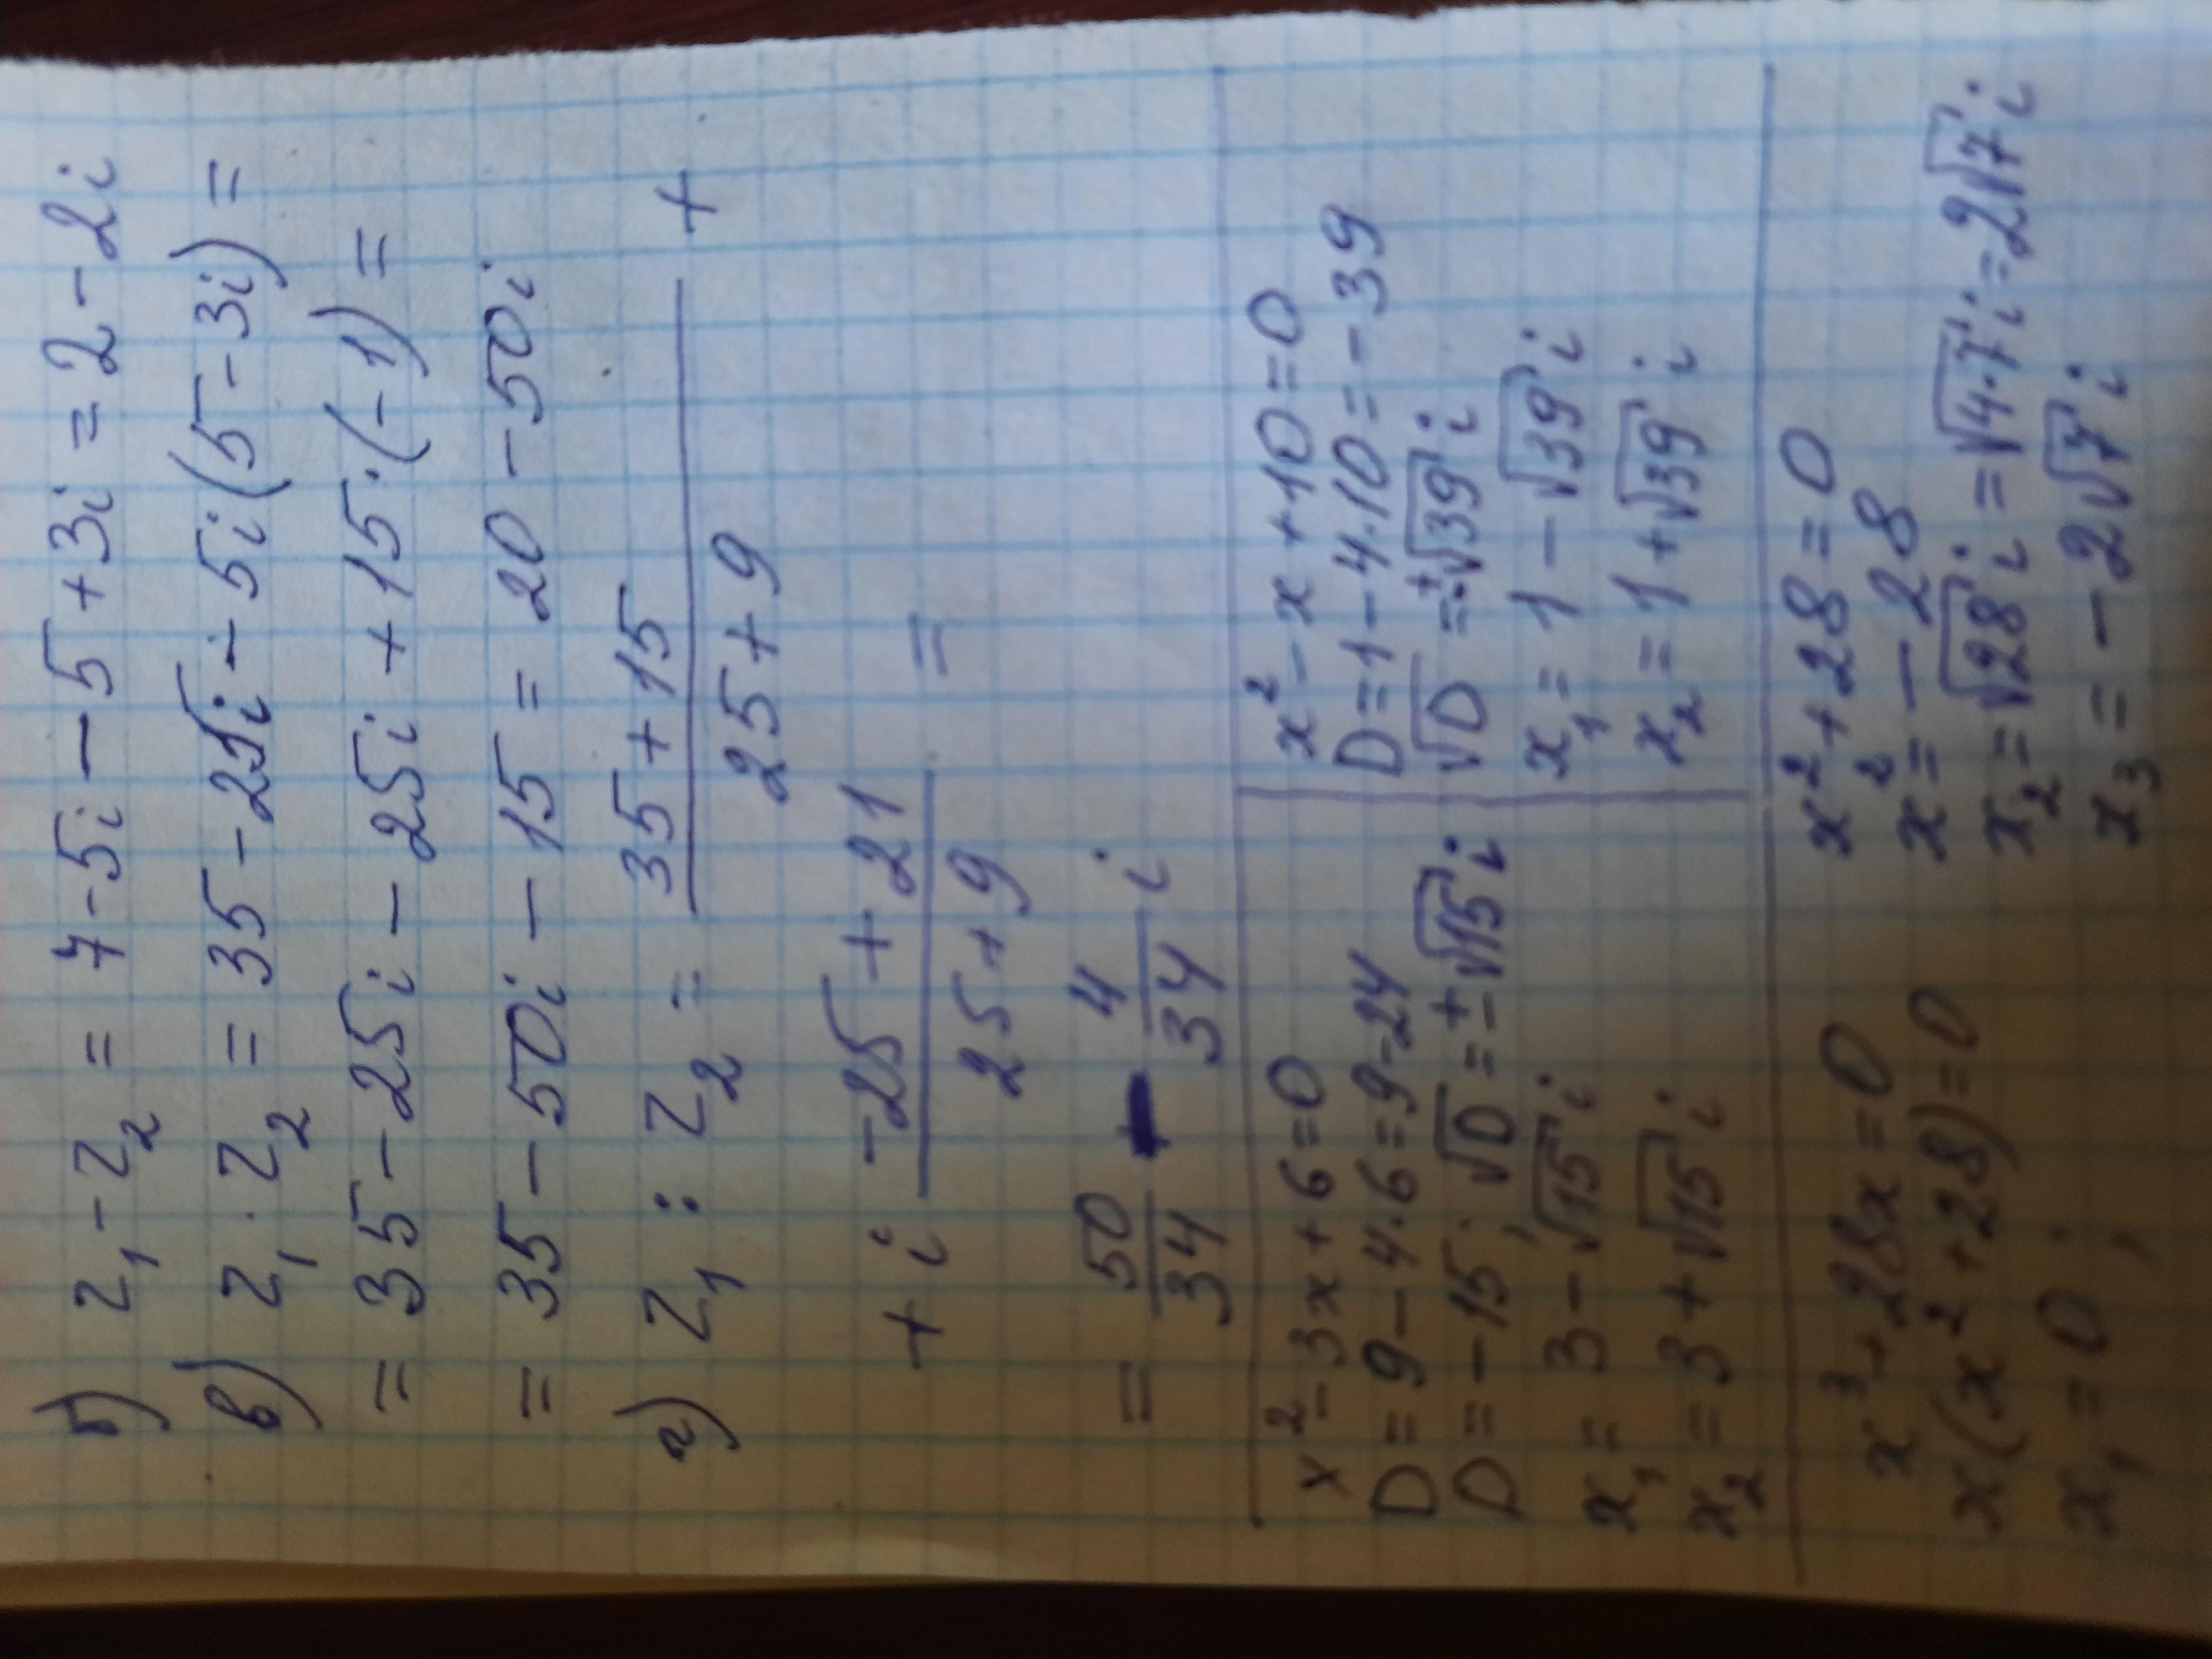 б) z₁ - z₂ = 7 - 5i - 5 + 3i = 2 - 2i
в) z₁ · z₂ = 35 - 21i - 5i(5 - 3i) =
= 35 - 25i - 25i + 15 · (-1) =
= 35 - 50i - 15 = 20 - 50i
г) z₁ : z₂ = (35 + 15)/(25 + 9) +
+ i (-25 + 21)/(25 + 9) =
= 50/34 - 4/34 i
x² - 3x + 6 = 0
D = 9 - 4·6 = 9 - 24
D = -15; √D = ±√15 i
x₁ = 3 - √15 i
x₂ = 3 + √15 i
x² - x + 10 = 0
D = 1 - 4·10 = -39
√D = ±√39 i
x₁ = 1 - √39 i
x₂ = 1 + √39 i
x³ + 28x = 0
x(x² + 28) = 0
x₁ = 0;
x² + 28 = 0
x² = -28
x₂ = √28 i = √4·7 i = 2√7 i
x₃ = -2√7 i